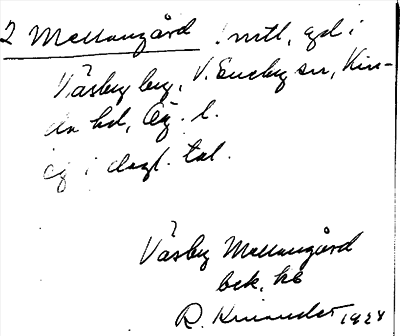 2 Mellangård 1 mtl, gd i
Väsby by, V. Eneby sn, Kin-
da hd, Ög. l.
ej i dagl. tal.
Väsby Mellangård
bek. hb
R. Kinander 1924